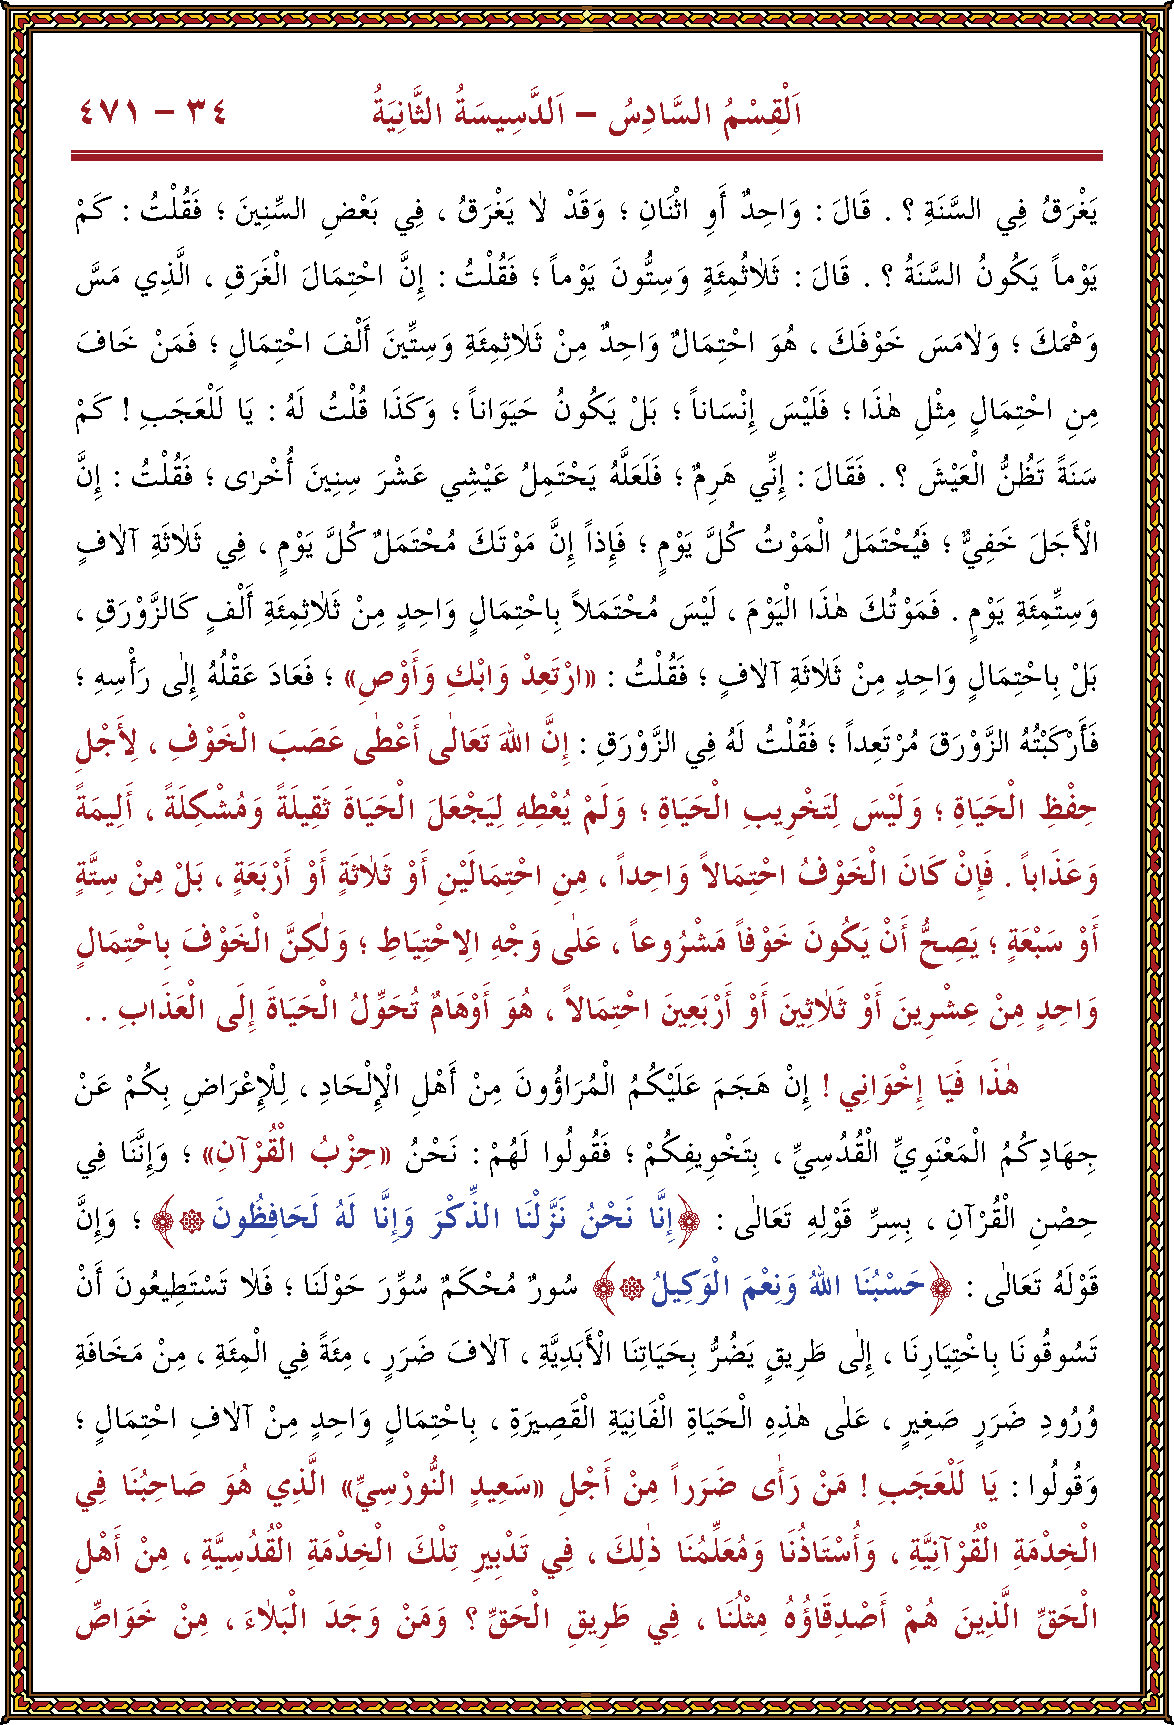 اَلْقِسْمُ السَّادِسُ – اَلدَّسِيسَةُ الثَّانِيَةُ ٣٤ – ٤٧١
يَغْرَقُ فِي السَّنَةِ ؟ . قَالَ : وَاحِدٌ أَوِ اثْنَانِ ؛ وَقَدْ لاٰ يَغْرَقُ ، فِي بَعْضِ السِّنِينَ ؛ فَقُلْتُ : كَمْ
يَوْماً يَكُونُ السَّنَةُ ؟ . قَالَ : ثَلاٰثُمِئَةٍ وَسِتُّونَ يَوْماً ؛ فَقُلْتُ : إِنَّ احْتِمَالَ الْغَرَقِ ، الَّذِي مَسَّ
وَهْمَكَ ؛ وَلاٰمَسَ خَوْفَكَ ، هُوَ احْتِمَالٌ وَاحِدٌ مِنْ ثَلاٰثِمِئَةِ وَسِتِّينَ أَلْفَ احْتِمَالٍ ؛ فَمَنْ خَافَ
مِنِ احْتِمَالٍ مِثْلِ هٰذَا ؛ فَلَيْسَ إِنْسَاناً ؛ بَلْ يَكُونُ حَيَوَاناً ؛ وَكَذَا قُلْتُ لَهُ : يَا لَلْعَجَبِ ! كَمْ
سَنَةً تَظُنُّ الْعَيْشَ ؟ . فَقَالَ : إِنِّي هَرِمٌ ؛ فَلَعَلَّهُ يَحْتَمِلُ عَيْشِي عَشْرَ سِنِينَ أُخْرٰى ؛ فَقُلْتُ : إِنَّ
الْأَجَلَ خَفِيٌّ ؛ فَيُحْتَمَلُ الْمَوْتُ كُلَّ يَوْمٍ ؛ فَإِذاً إِنَّ مَوْتَكَ مُحْتَمَلٌ كُلَّ يَوْمٍ ، فِي ثَلاٰثَةِ آلاٰفٍ
وَسِتِّمِئَةِ يَوْمٍ . فَمَوْتُكَ هٰذَا الْيَوْمَ ، لَيْسَ مُحْتَمَلاً بِاحْتِمَالٍ وَاحِدٍ مِنْ ثَلاٰثِمِئَةِ أَلْفٍ كَالزَّوْرَقِ ،
بَلْ بِاحْتِمَالٍ وَاحِدٍ مِنْ ثَلاٰثَةِ آلاٰفٍ ؛ فَقُلْتُ : «ارْتَعِدْ وَابْكِ وَأَوْصِ» ؛ فَعَادَ عَقْلُهُ إِلٰى رَأْسِهِ ؛
فَأَرْكَبْتُهُ الزَّوْرَقَ مُرْتَعِداً ؛ فَقُلْتُ لَهُ فِي الزَّوْرَقِ : إِنَّ اللهَ تَعَالٰى أَعْطٰى عَصَبَ الْخَوْفِ ، لِأَجْلِ
حِفْظِ الْحَيَاةِ ؛ وَلَيْسَ لِتَخْرِيبِ الْحَيَاةِ ؛ وَلَمْ يُعْطِهِ لِيَجْعَلَ الْحَيَاةَ ثَقِيلَةً وَمُشْكِلَةً ، أَلِيمَةً
وَعَذَاباً . فَإِنْ كَانَ الْخَوْفُ احْتِمَالاً وَاحِداً ، مِنِ احْتِمَالَيْنِ أَوْ ثَلاٰثَةٍ أَوْ أَرْبَعَةٍ ، بَلْ مِنْ سِتَّةٍ
أَوْ سَبْعَةٍ ؛ يَصِحُّ أَنْ يَكُونَ خَوْفاً مَشْرُوعاً ، عَلٰى وَجْهِ الِاحْتِيَاطِ ؛ وَلٰكِنَّ الْخَوْفَ بِاحْتِمَالٍ
وَاحِدٍ مِنْ عِشْرِينَ أَوْ ثَلاٰثِينَ أَوْ أَرْبَعِينَ احْتِمَالاً ، هُوَ أَوْهَامٌ تُحَوِّلُ الْحَيَاةَ إِلَى الْعَذَابِ . .
هٰذَا فَيَا إِخْوَانِي ! إِنْ هَجَمَ عَلَيْكُمُ الْمُرَاؤُونَ مِنْ أَهْلِ الْإِلْحَادِ ، لِلْإِعْرَاضِ بِكُمْ عَنْ
جِهَادِكُمُ الْمَعْنَوِيِّ الْقُدُسِيِّ ، بِتَخْوِيفِكُمْ ؛ فَقُولُوا لَهُمْ : نَحْنُ «حِزْبُ الْقُرْآنِ» ؛ وَإِنَّنَا فِي
حِصْنِ الْقُرْآنِ ، بِسِرِّ قَوْلِهِ تَعَالٰى : ﴿إِنَّا نَحْنُ نَزَّلْنَا الذِّكْرَ وَإِنَّا لَهُ لَحَافِظُونَ﴾ ؛ وَإِنَّ
قَوْلَهُ تَعَالٰى : ﴿حَسْبُنَا اللهُ وَنِعْمَ الْوَكِيلُ﴾ سُورٌ مُحْكَمٌ سُوِّرَ حَوْلَنَا ؛ فَلاٰ تَسْتَطِيعُونَ أَنْ
تَسُوقُونَا بِاخْتِيَارِنَا ، إِلٰى طَرِيقٍ يَضُرُّ بِحَيَاتِنَا الْأَبَدِيَّةِ ، آلاٰفَ ضَرَرٍ ، مِئَةً فِي الْمِئَةِ ، مِنْ مَخَافَةِ
وُرُودِ ضَرَرٍ صَغِيرٍ ، عَلٰى هٰذِهِ الْحَيَاةِ الْفَانِيَةِ الْقَصِيرَةِ ، بِاحْتِمَالٍ وَاحِدٍ مِنْ آلاٰفِ احْتِمَالٍ ؛
وَقُولُوا : يَا لَلْعَجَبِ ! مَنْ رَأٰى ضَرَراً مِنْ أَجْلِ «سَعِيدٍ النُّورْسِيِّ» الَّذِي هُوَ صَاحِبُنَا فِي
الْخِدْمَةِ الْقُرْآنِيَّةِ ، وَأُسْتَاذُنَا وَمُعَلِّمُنَا ذٰلِكَ ، فِي تَدْبِيرِ تِلْكَ الْخِدْمَةِ الْقُدُسِيَّةِ ، مِنْ أَهْلِ
الْحَقِّ الَّذِينَ هُمْ أَصْدِقَاؤُهُ مِثْلُنَا ، فِي طَرِيقِ الْحَقِّ ؟ وَمَنْ وَجَدَ الْبَلاٰءَ ، مِنْ خَوَاصِّ